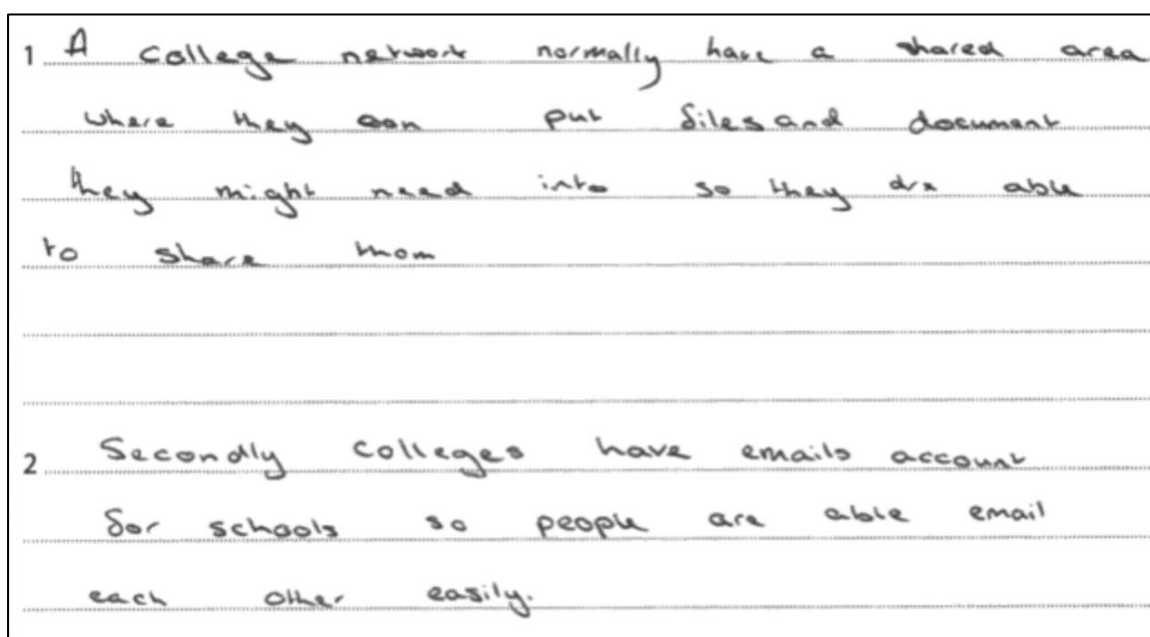 1 A college network normally have a shared area
where they can put files and document
they might need into so they are able
to share them
2 Secondly colleges have emails account
for schools so people are able email
each other easily.